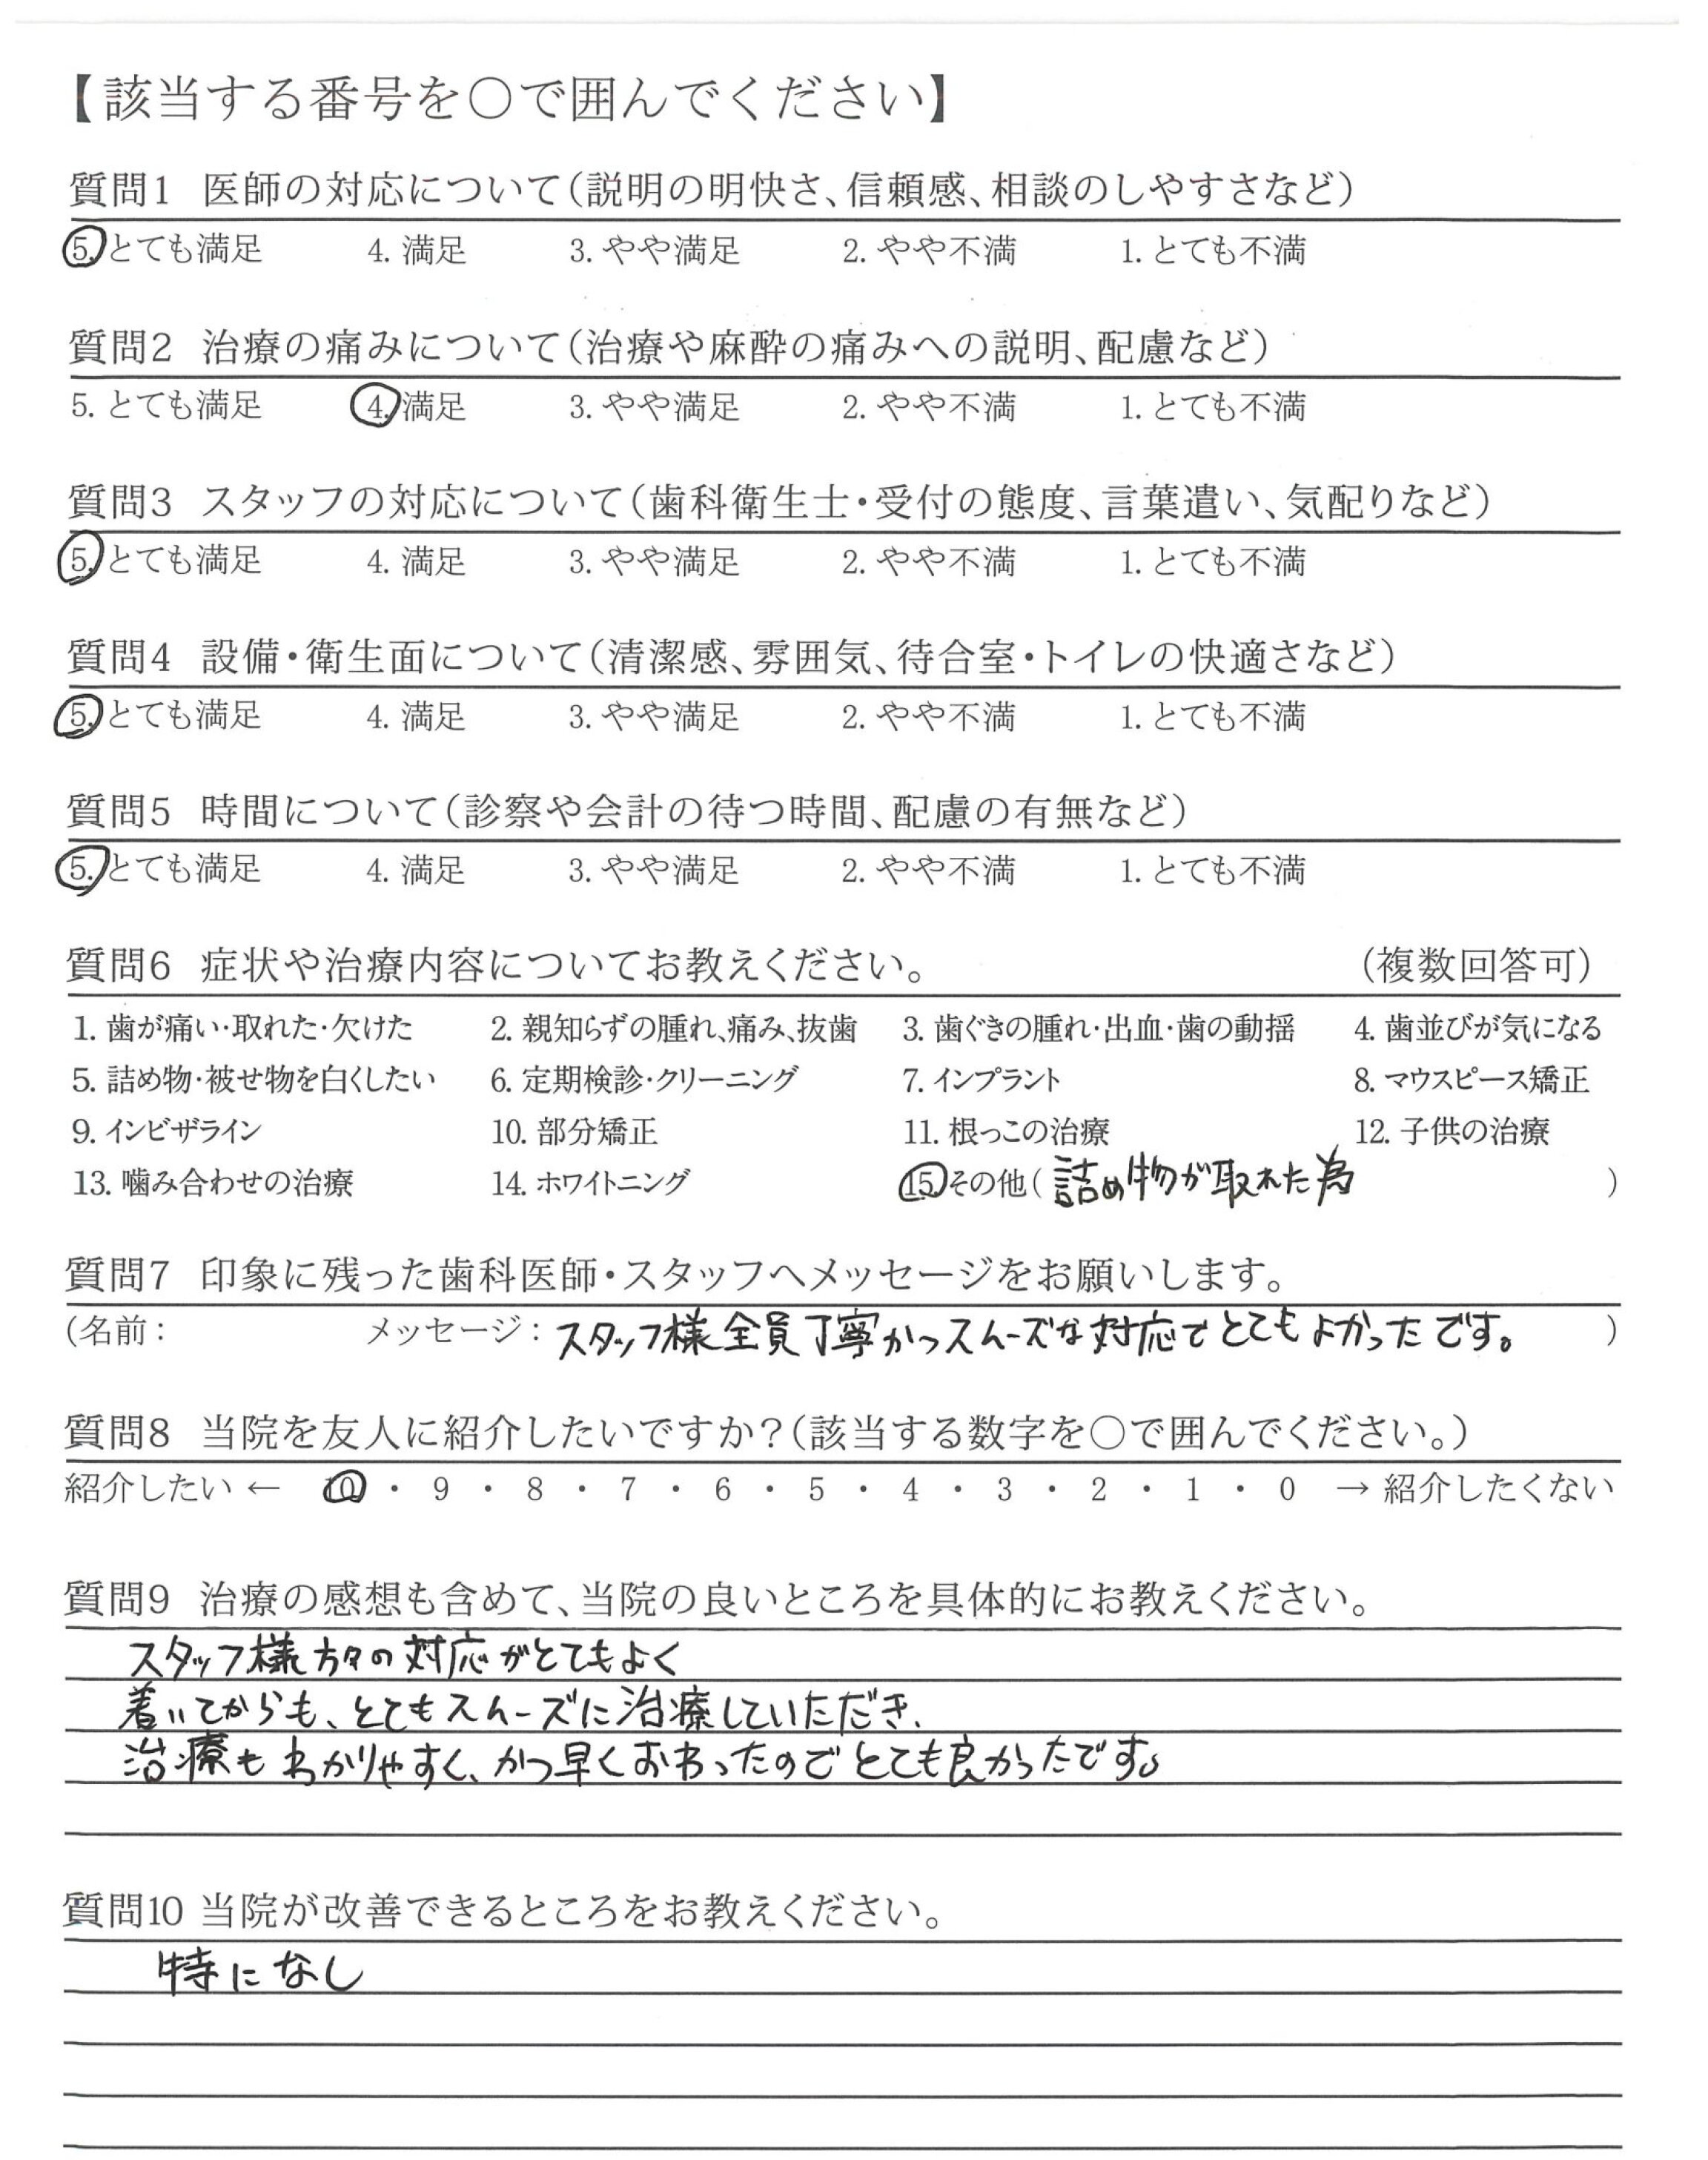 【該当する番号を○で囲んでください】
質問1 医師の対応について（説明の明快さ、信頼感、相談のしやすさなど）
5. とても満足 4. 満足 3. やや満足 2. やや不満 1. とても不満
質問2 治療の痛みについて（治療や麻酔の痛みへの説明、配慮など）
5. とても満足 4. 満足 3. やや満足 2. やや不満 1. とても不満
質問3 スタッフの対応について（歯科衛生士・受付の態度、言葉遣い、気配りなど）
5. とても満足 4. 満足 3. やや満足 2. やや不満 1. とても不満
質問4 設備・衛生面について（清潔感、雰囲気、待合室・トイレの快適さなど）
5. とても満足 4. 満足 3. やや満足 2. やや不満 1. とても不満
質問5 時間について（診察や会計の待つ時間、配慮の有無など）
5. とても満足 4. 満足 3. やや満足 2. やや不満 1. とても不満
質問6 症状や治療内容についてお教えください。 （複数回答可）
1. 歯が痛い・取れた・欠けた 2. 親知らずの腫れ、痛み、抜歯 3. 歯ぐきの腫れ・出血・歯の動揺 4. 歯並びが気になる
5. 詰め物・被せ物を白くしたい 6. 定期検診・クリーニング 7. インプラント 8. マウスピース矯正
9. インビザライン 10. 部分矯正 11. 根っこの治療 12. 子供の治療
13. 噛み合わせの治療 14. ホワイトニング 15. その他（ 詰め物が取れた為 ）
質問7 印象に残った歯科医師・スタッフへメッセージをお願いします。
（名前： メッセージ：スタッフ様全員丁寧かつスムーズな対応でとてもよかったです。 ）
質問8 当院を友人に紹介したいですか？（該当する数字を○で囲んでください。）
紹介したい ← 10 ・ 9 ・ 8 ・ 7 ・ 6 ・ 5 ・ 4 ・ 3 ・ 2 ・ 1 ・ 0 → 紹介したくない
質問9 治療の感想も含めて、当院の良いところを具体的にお教えください。
スタッフ様方々の対応がとてもよく
着いてからも、とてもスムーズに治療していただき、
治療もわかりやすく、かつ早くおわったのでとても良かったです。
質問10 当院が改善できるところをお教えください。
特になし